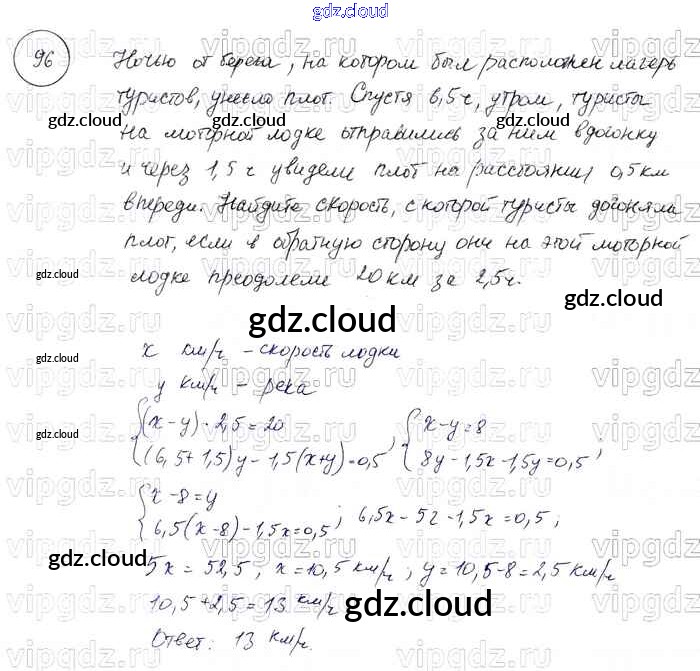 gdz.cloud
gdz.cloud
96 Ночью от берега, на котором был расположен лагерь
туристов, унесло плот. Спустя 6,5 ч, утром, туристы
gdz.cloud gdz.cloud gdz.cloud
на моторной лодке отправились за ним вдогонку
и через 1,5 ч увидели плот на расстоянии 0,5 км
впереди. Найдите скорость, с которой туристы догоняли
gdz.cloud gdz.cloud gdz.cloud
плот, если в обратную сторону они на этой моторной
лодке преодолели 20 км за 2,5 ч.
gdz.cloud
gdz.cloud
gdz.cloud
x км/ч – скорость лодки
gdz.cloud
y км/ч – река
{(x-y)·2,5=20 {x-y=8
gdz.cloud
{(6,5+1,5)y-1,5(x+y)=0,5; {8y-1,5x-1,5y=0,5;
{x-8=y
{6,5(x-8)-1,5x=0,5; 6,5x-52-1,5x=0,5;
gdz.cloud gdz.cloud
5x=52,5; x=10,5 км/ч; y=10,5-8=2,5 км/ч
10,5+2,5=13 км/ч
gdz.cloud
Ответ: 13 км/ч.
vipgdz.ru